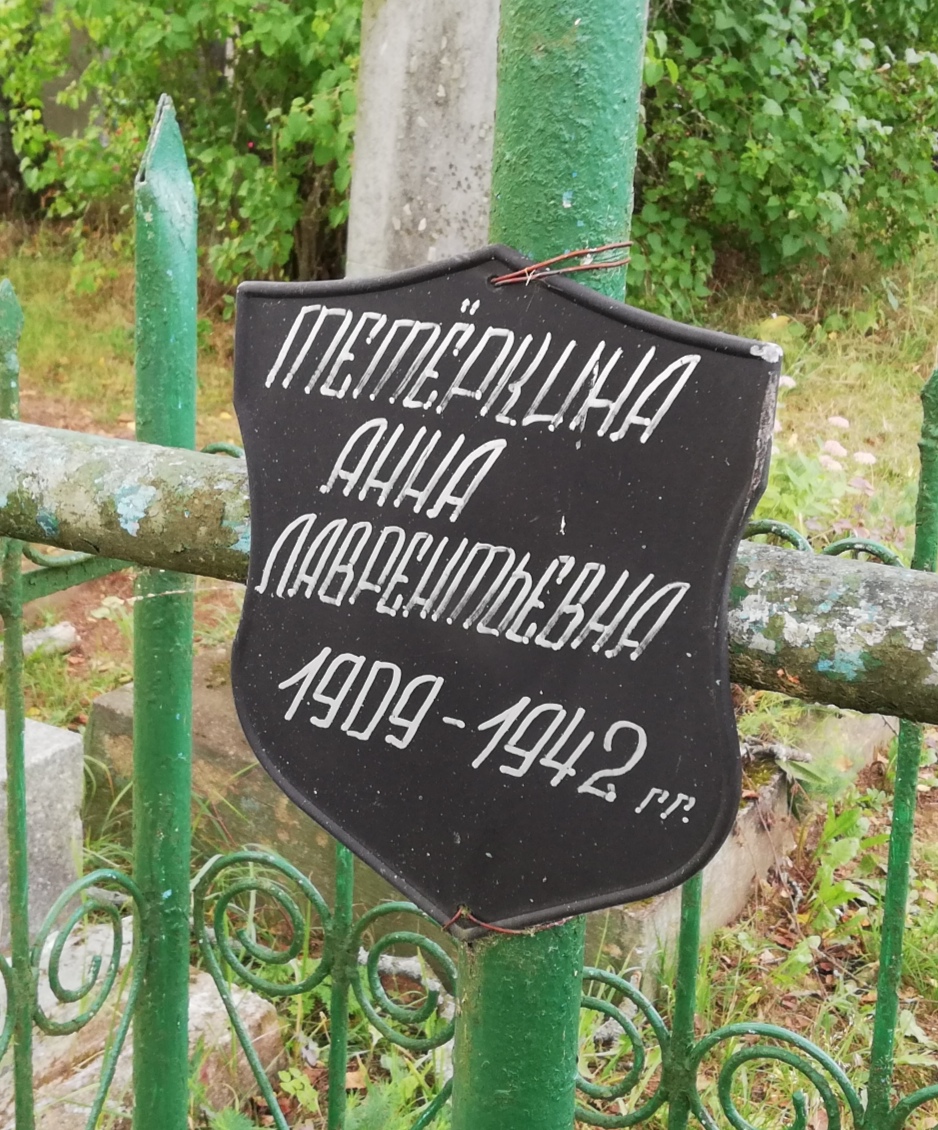 ТЕТЁРКИНА
АННА
ЛАВРЕНТЬЕВНА
1909-1942 гг.